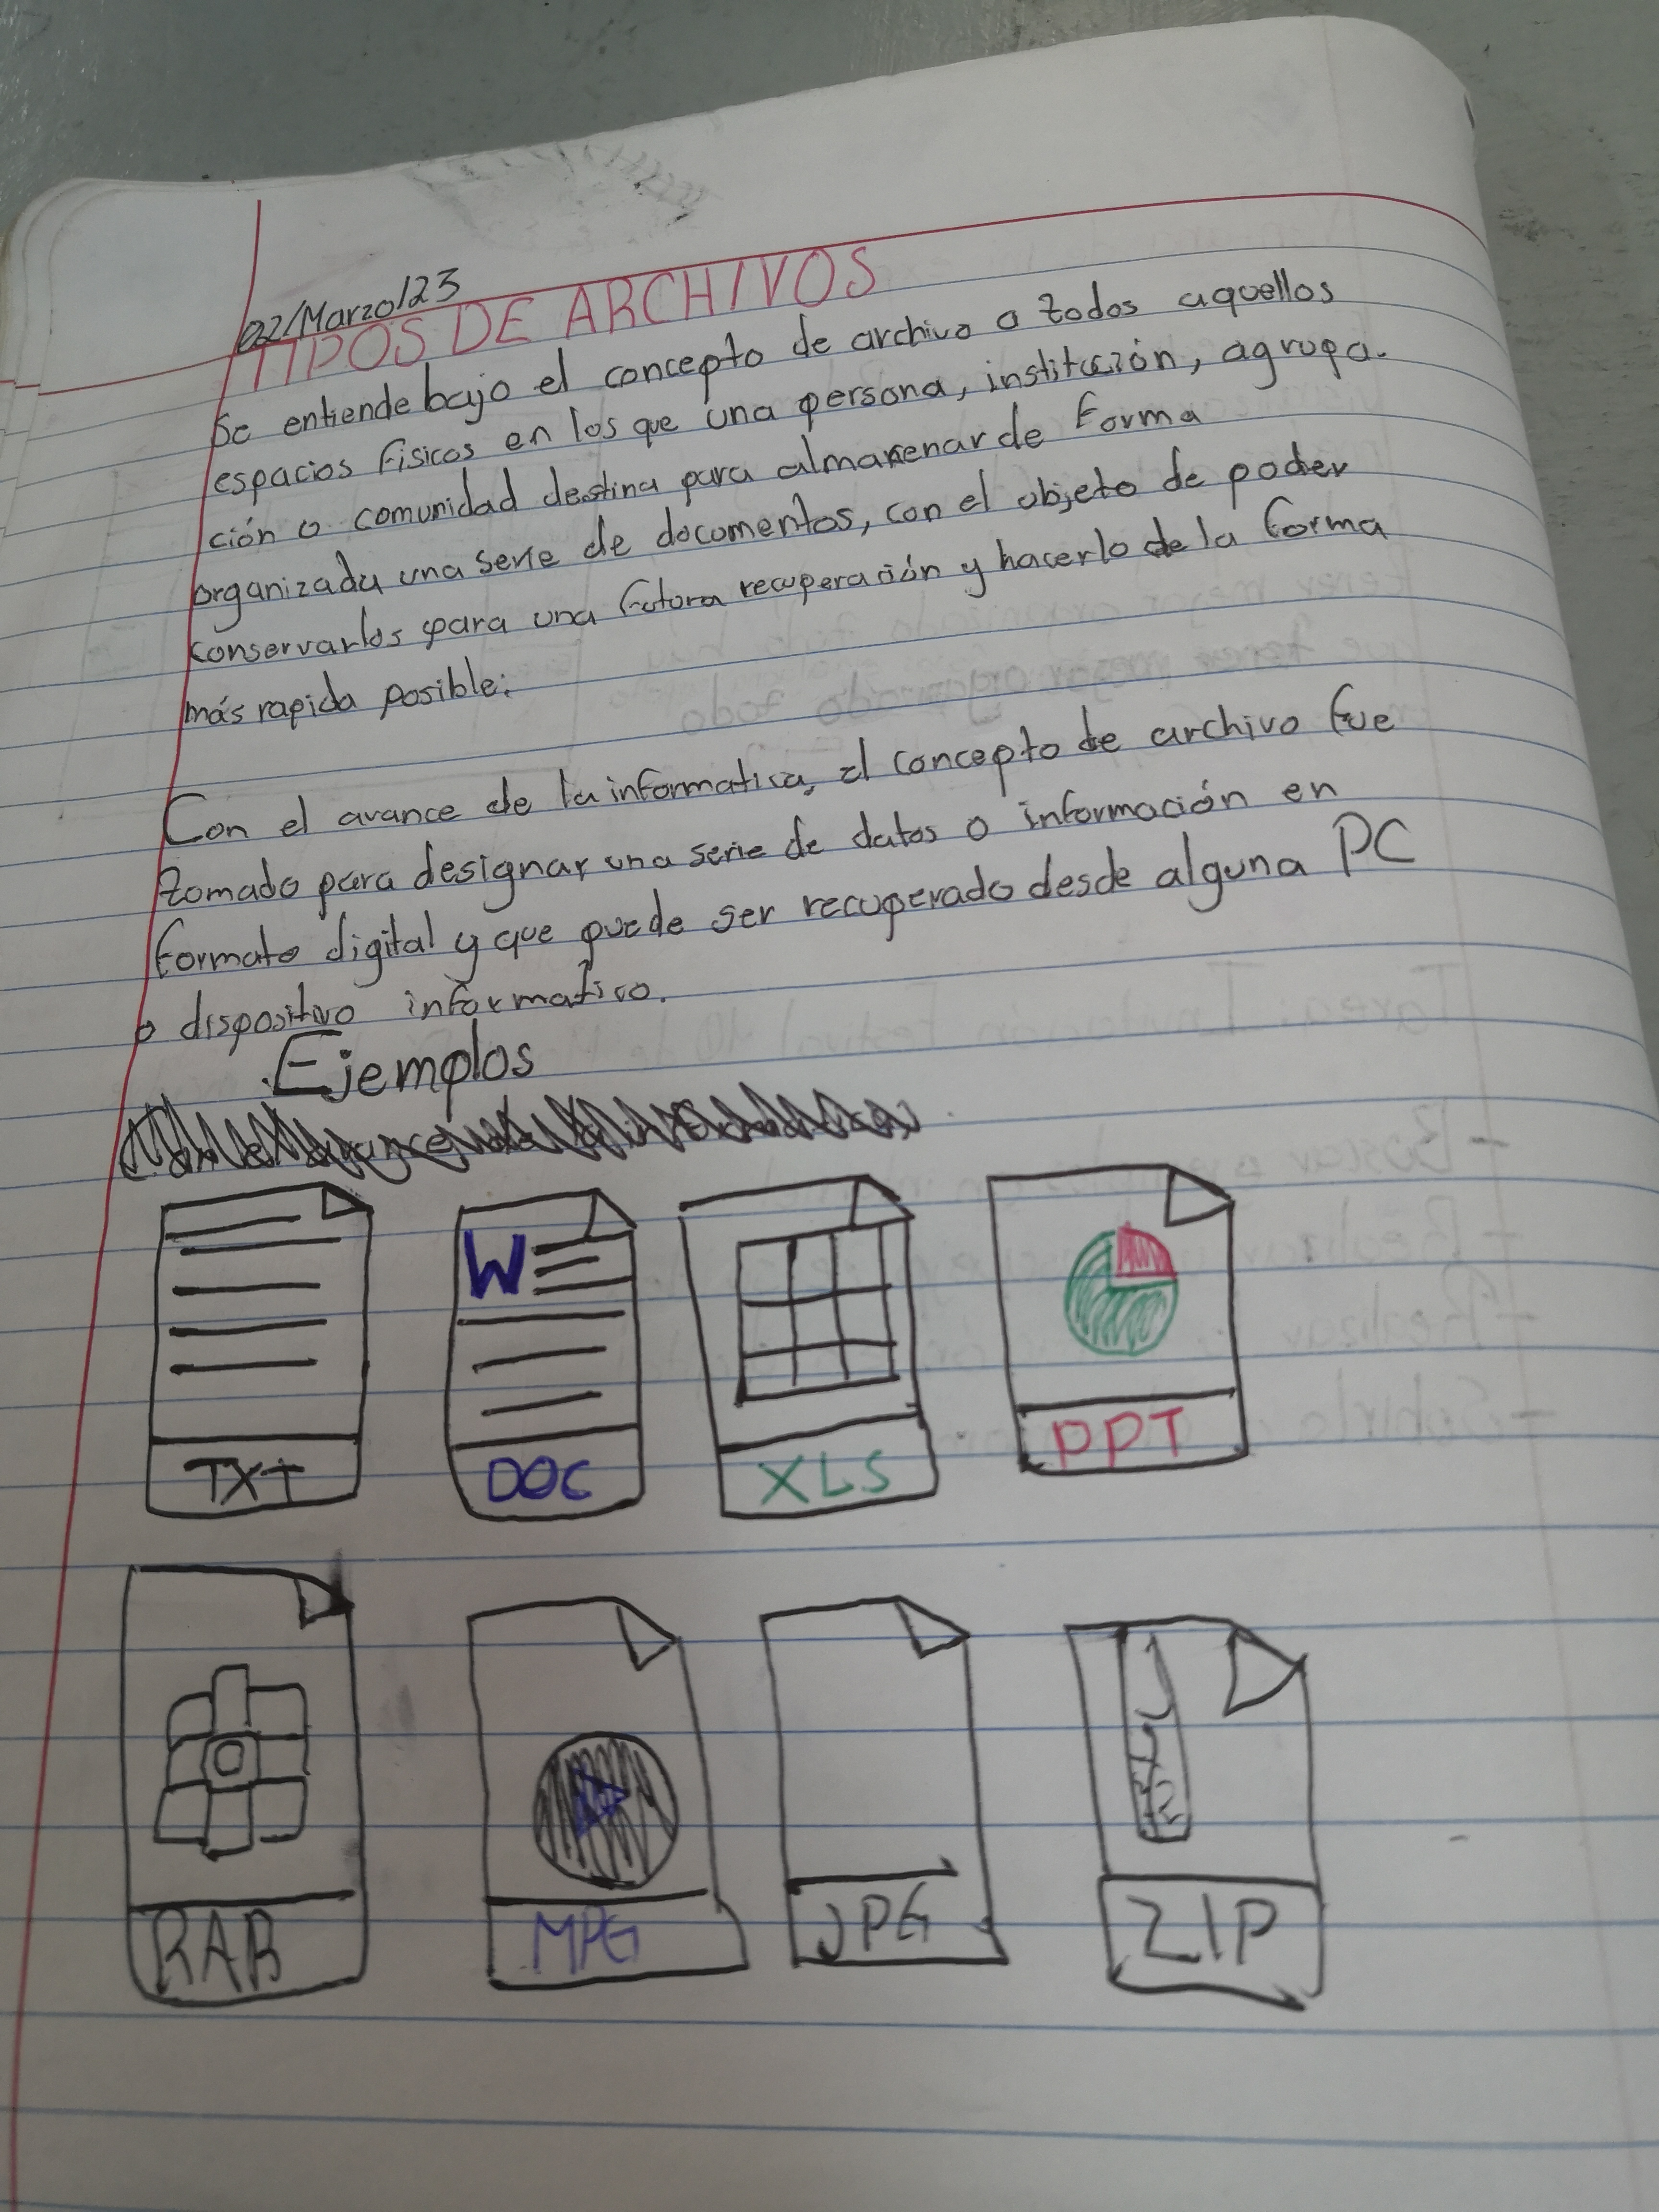 02/Marzo/23
TIPOS DE ARCHIVOS
Se entiende bajo el concepto de archivo a todos aquellos
espacios fisicos en los que una persona, institución, agrupa-
ción o comunidad destina para almacenar de forma
organizada una serie de documentos, con el objeto de poder
conservarlos para una futura recuperación y hacerlo de la forma
más rapida posible.
Con el avance de la informatica, el concepto de archivo fue
tomado para designar una serie de datos o información en
formato digital y que puede ser recuperado desde alguna PC
o dispositivo informativo.
Ejemplos
TXT DOC XLS PPT
RAR MPG JPG ZIP